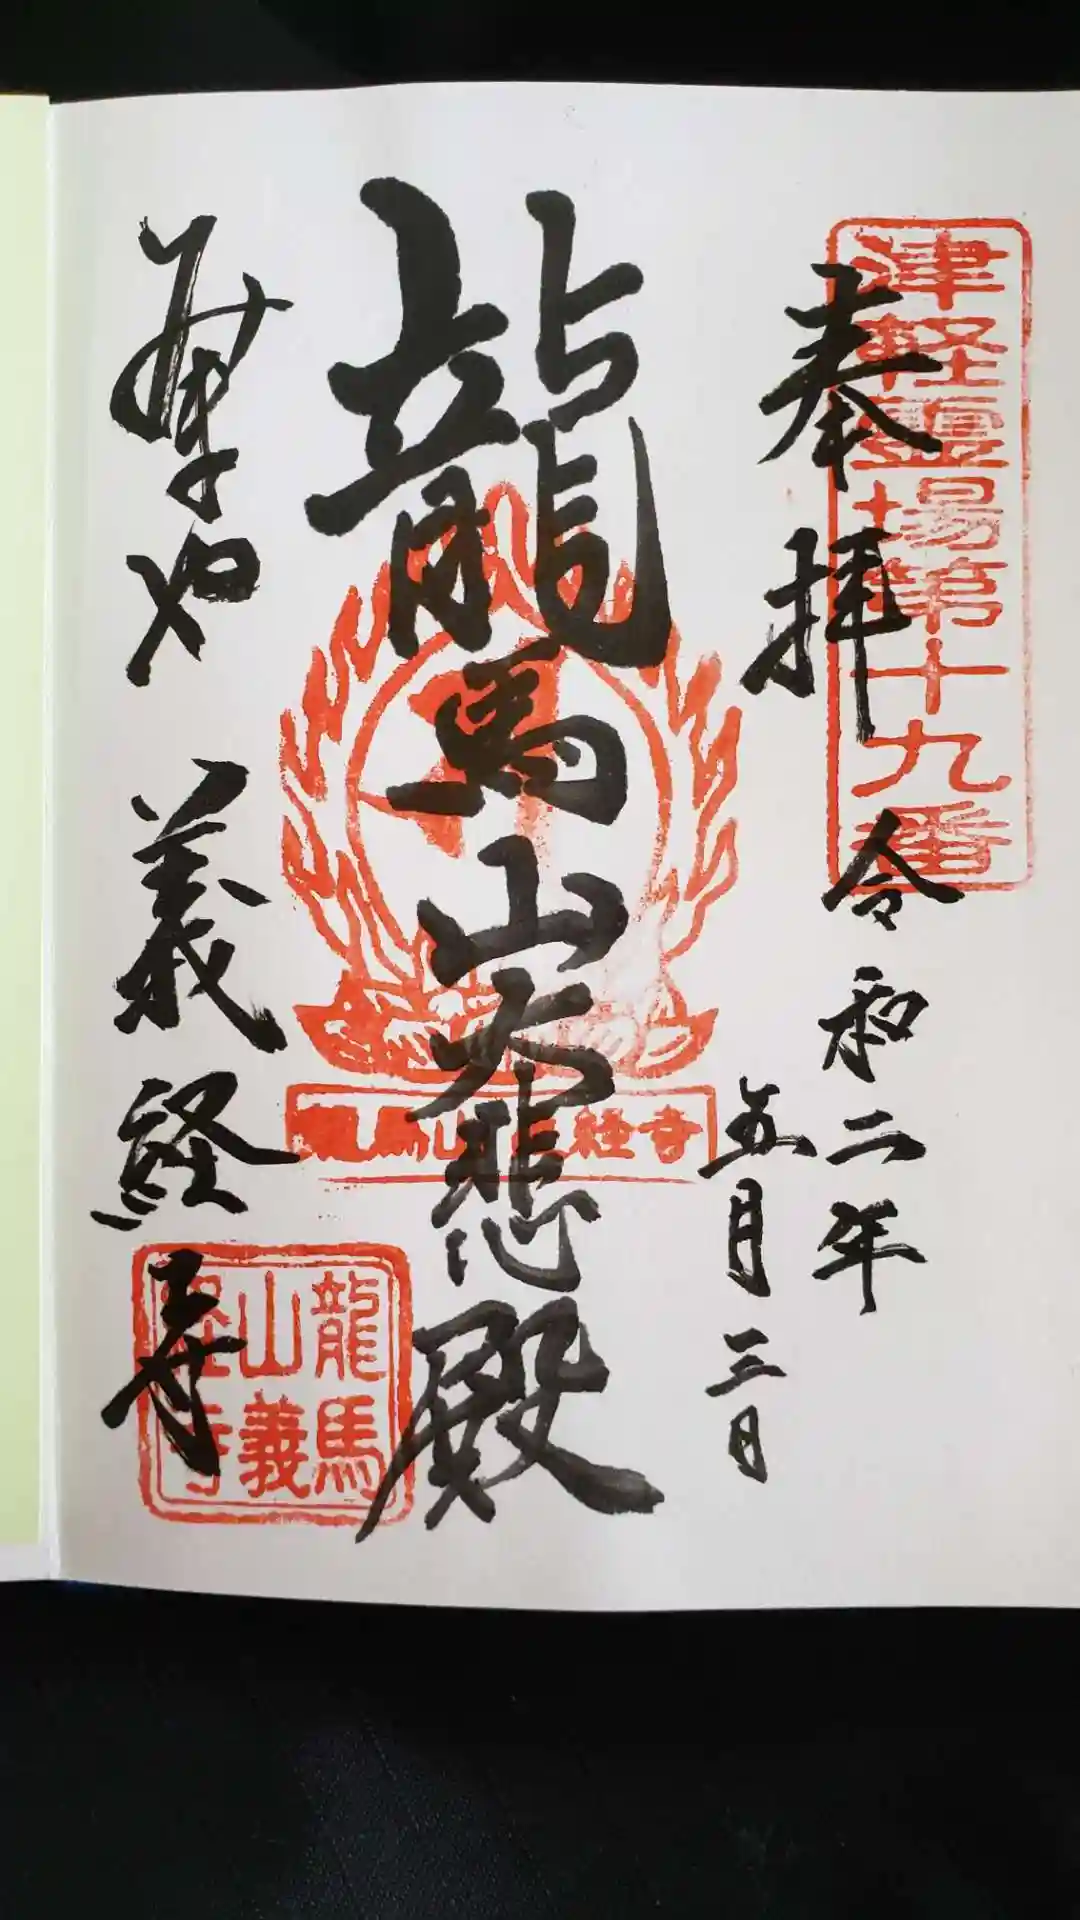 津軽靈場第十九番
奉拝
令和二年
五月三日
龍馬山大悲殿
龍馬山義経寺
義経寺
龍馬
山義
経寺